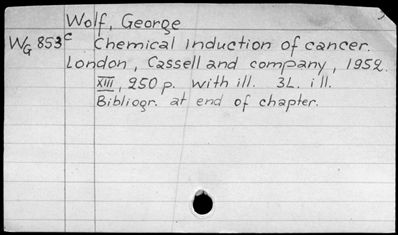 Wolf, George
WG 853c Chemical induction of cancer.
London, Cassell and company, 1952.
XIII, 250 p. with ill. 3L. ill.
Bibliogr. at end of chapter.